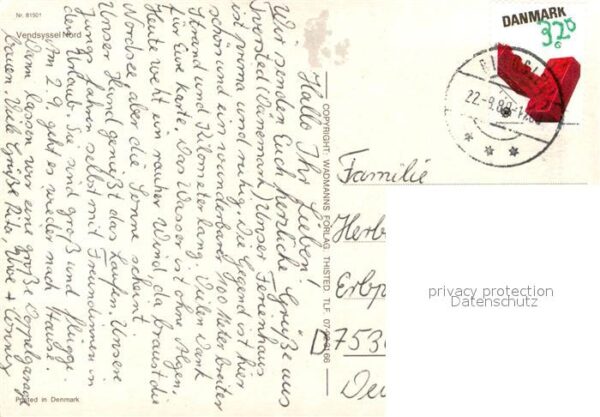 Nr. 81501
Vendsyssel Nord
Hallo Ihr Lieben!
Wir senden Euch herzliche Grüße aus
Tversted (Dänemark) Unser Ferienhaus
ist prima und ruhig. Die Gegend ist hier
schön und ein wunderbarer 100 Meter breiter
Strand und Kilometer lang. Vielen Dank
für Eure Karte. Das Wasser ist ohne Algen.
Heute weht ein rauher Wind, da braust die
Nordsee, aber die Sonne scheint.
Unser Hund genießt das Laufen. Unsere
Jungs fahren selbst mit Freundinnen in
den Urlaub. Sie sind groß und flügge.
Am 2.9. geht es wieder nach Hause.
Dann lassen wir eine große Doppelgarage
bauen. Viele Grüße Rita, Uwe +
Printed in Denmark
COPYRIGHT: WADMANNS FORLAG THISTED. TLF.
DANMARK
320
22.-9.89
Familie
Herb
Erbp
D 7530
Deu
privacy protection
Datenschutz